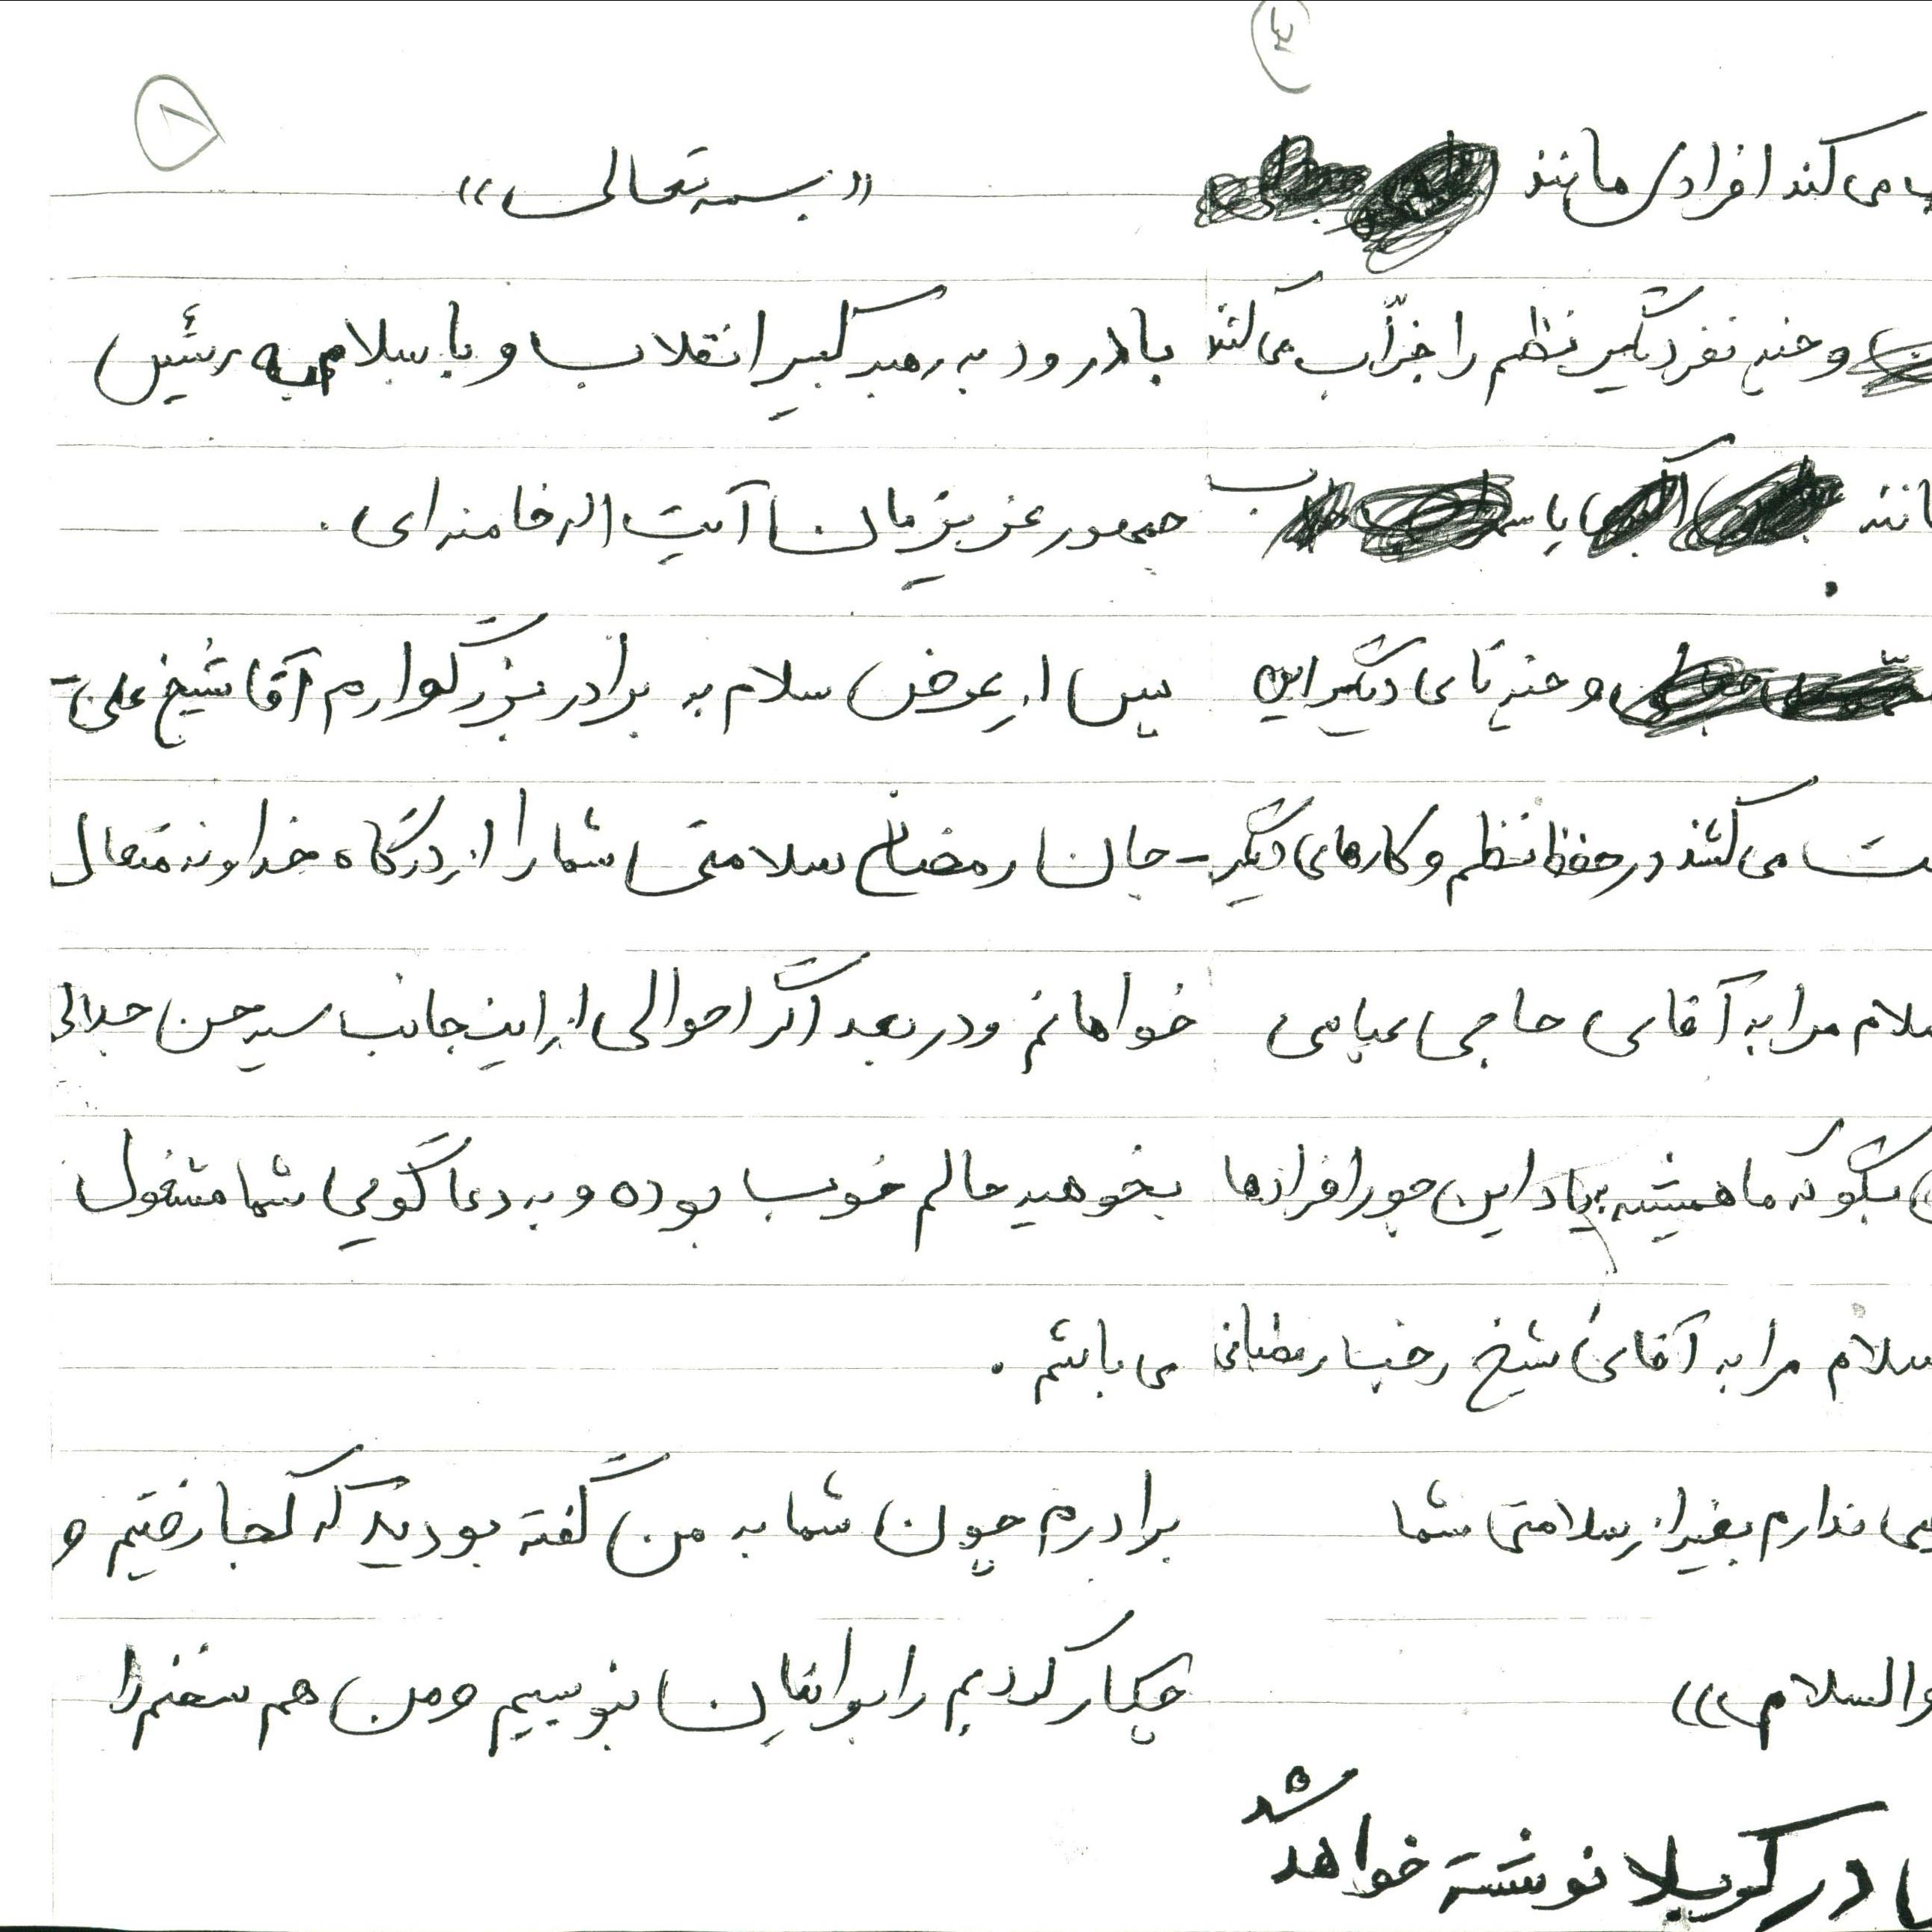 ۱
«بسمه تعالی»
با درود به رهبر کبیر انقلاب و با سلام به رئیس
جمهور عزیزمان آیت اله خامنه ای .
پس از عرض سلام به برادر بزرگوارم آقا شیخ علی -
جان رمضان سلامتی شما را از درگاه خداوند متعال
خواهانم و در بعد اگر احوالی از این جانب سید حسن جلالی
بخوهید حالم خوب بوده و به دعا گویی شما مشغول
می باشم .
برادرم چون شما به من گفته بودید که کجا رفتیم و
چیکار کردیم را برایتان بنویسیم و من هم سخنم را
۳
می کند افرادی مانند
و چند نفر دیگر نظم را خرّاب می کنند
مانند یا سر
و چند تای دیگر این
می کشند در حفظ نظم و کارهای دیگر -
سلام مرا به آقای حاجی
بگو که ما همیشه بیاد این جور افرادها
سلام مرا به آقای شیخ رجب رمضانی
ندارم بغیر از سلامتی شما
والسلام »»
در کربلا نوشته خواهد شد